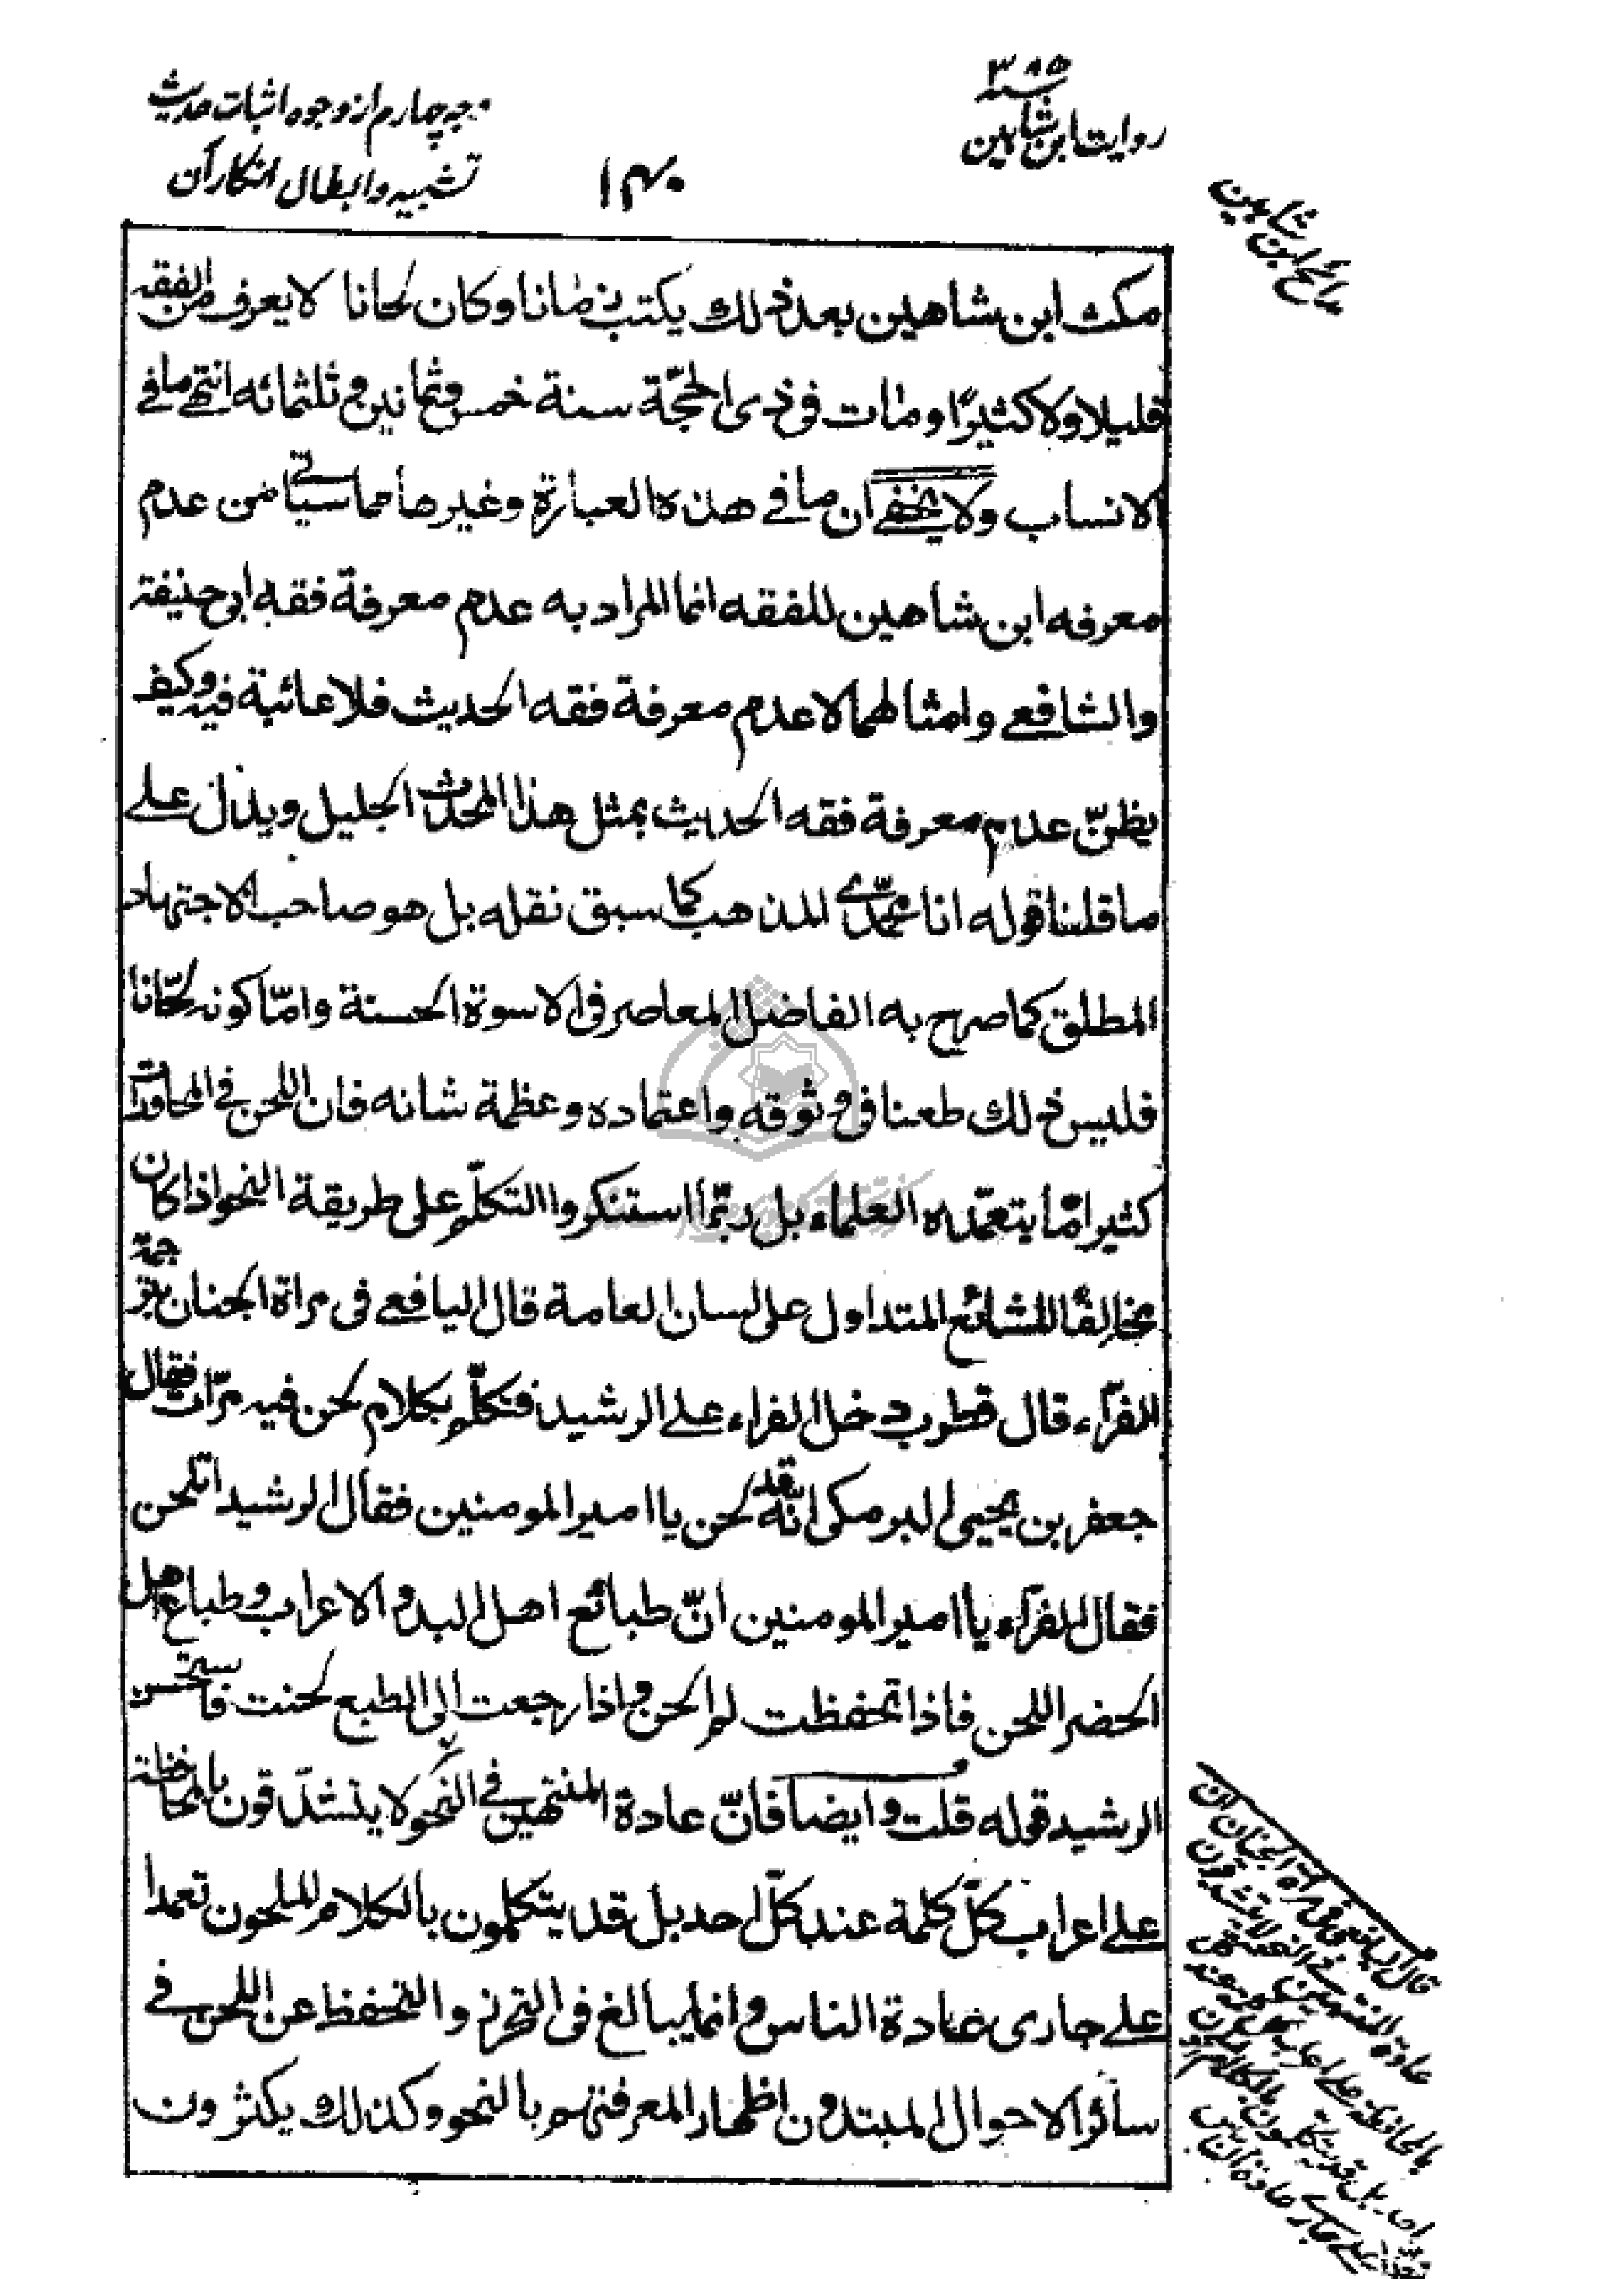 ۳۸۵
روایت ابن شاهین
وجه چهارم از وجوه اثبات حدیث
تشبیه و ابطال انکار آن
مدائح ابن شاهین
مکث ابن شاهین بعد ذلك يكتب زمانا وكان لحانا لا يعرف من الفقه
قليلا ولا كثيرًا ومات فى ذى الحجّة سنة خمس وثمانين وثلثمائه انتهى ما فے
الانساب ولا يخفے ان ما فے هذه العبارة وغيرها مما سياتے من عدم
معرفه ابن شاهين للفقه انما المراد به عدم معرفة فقه ابى حنيفة
والشافعے وامثالهما لا عدم معرفة فقه الحديث فلا عائبة فيه وكيف
يظنّ عدم معرفة فقه الحديث بمثل هذا المحدث الجليل ويدل علے
ما قلنا قوله انا محمّدے المذهب كما سبق نقله بل هو صاحب الاجتهاد
المطلق كما صرح به الفاضل المعاصر فى الاسوة الحسنة وامّا كونه لحّانا
فليس ذلك طعنا فى وثوقه واعتماده وعظمة شانه فان اللحن فے المحاورات
كثيرا مّا يتعمّده العلماء بل ربّما استنكروا التكلّم على طريقة النحو اذا كان
مخالفًا للشائع المتداول على لسان العامة قال اليافعے فى مراة الجنان بترجمة
الفرّاء قال قطرب دخل الفراء علے الرشيد فتكلّم بكلام لحن فيه مرّات فقال
جعفر بن يحيى البرمكى انّه قد لحن يا امير المومنين فقال الرشيد اتلحن
فقال الفرّاء يا امير المومنين انّ طبائع اهل البدو الاعراب وطباع اهل
الحضر اللحن فاذا تحفظت لم الحن واذا رجعت الى الطبع لحنت فاستحسن
الرشيد قوله قلت وايضا فانّ عادة المنتهين فے النحو لا يتشدّقون بالمحافظة
علے اعراب كلّ كلمة عند كلّ احد بل قد يتكلمون بالكلام الملحون تعمدا
علے جارى عادة الناس وانما يبالغ فى التحرز والتحفظ عن اللحن فے
سائر الاحوال المبتدؤن اظهارا لمعرفتهم بالنحو وكذلك يكثرون
قال الیافعی فی مراة الجنان ان
عادة المنتهین فے النحو لا یتشدقون
بالمحافظة علے اعراب کل کلمة عند کل
احد بل قد یتکلمون بالکلام الملحون
تعمّدا علے جارے عادة الناس